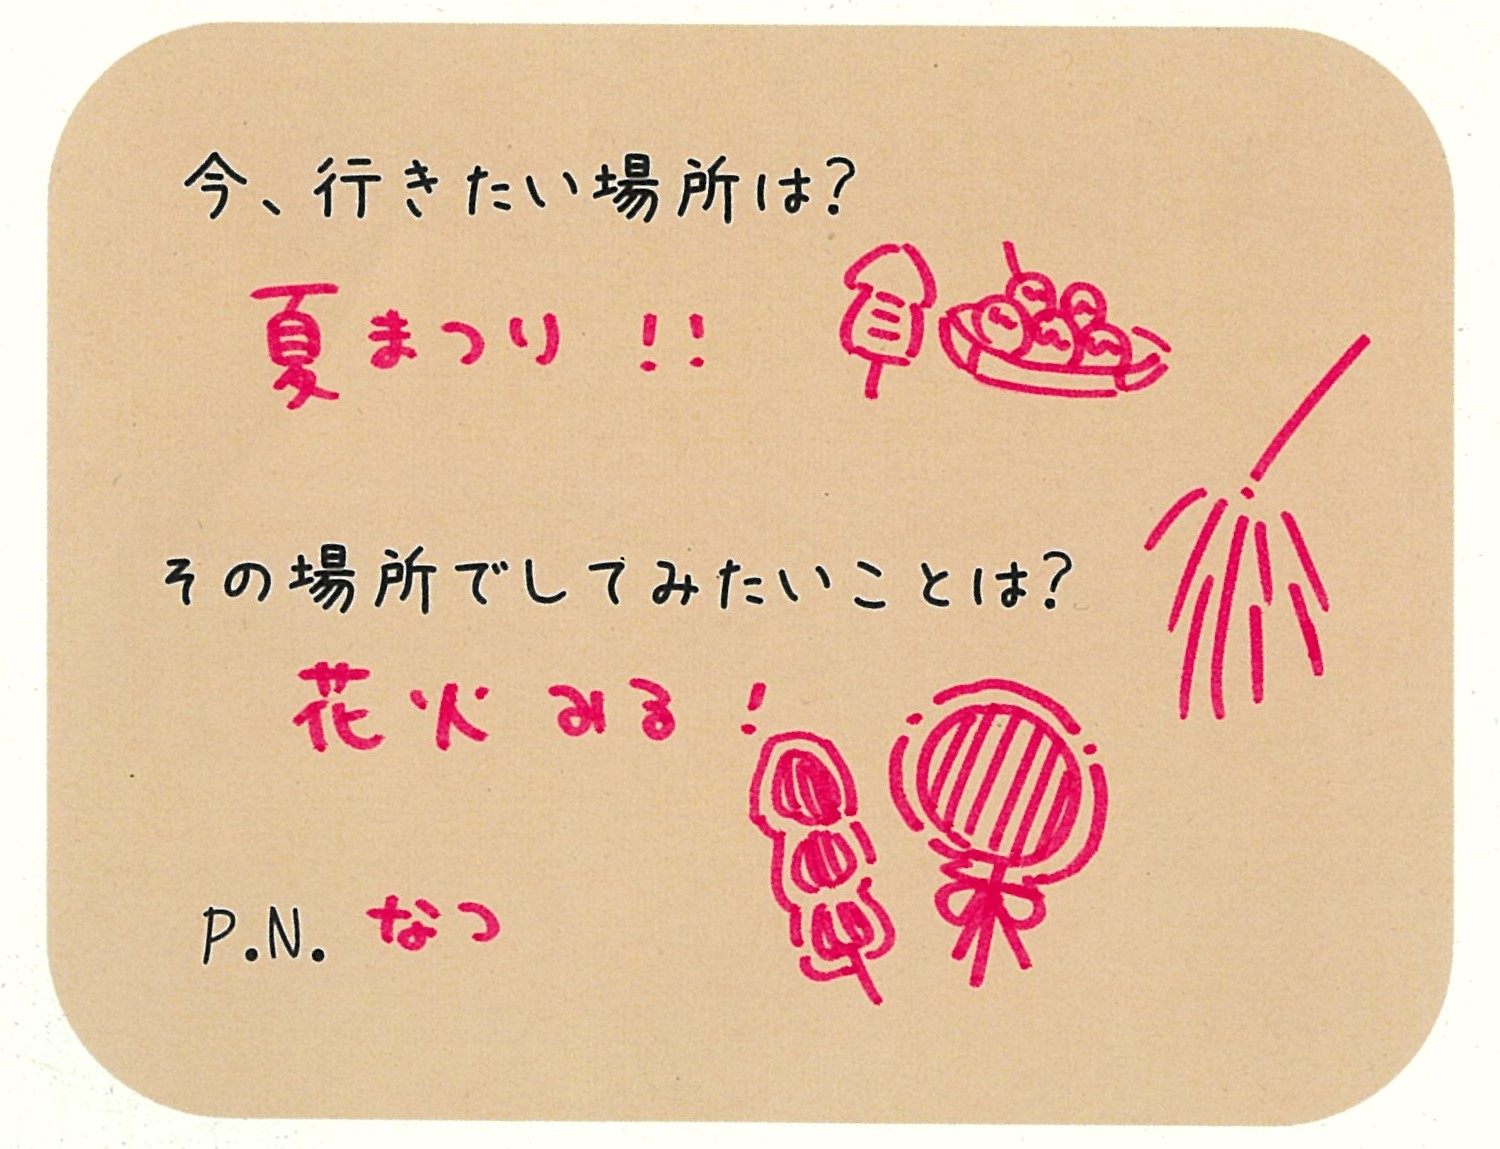 今、行きたい場所は?
夏まつり!!
その場所でしてみたいことは?
花火みる!
P.N. なつ